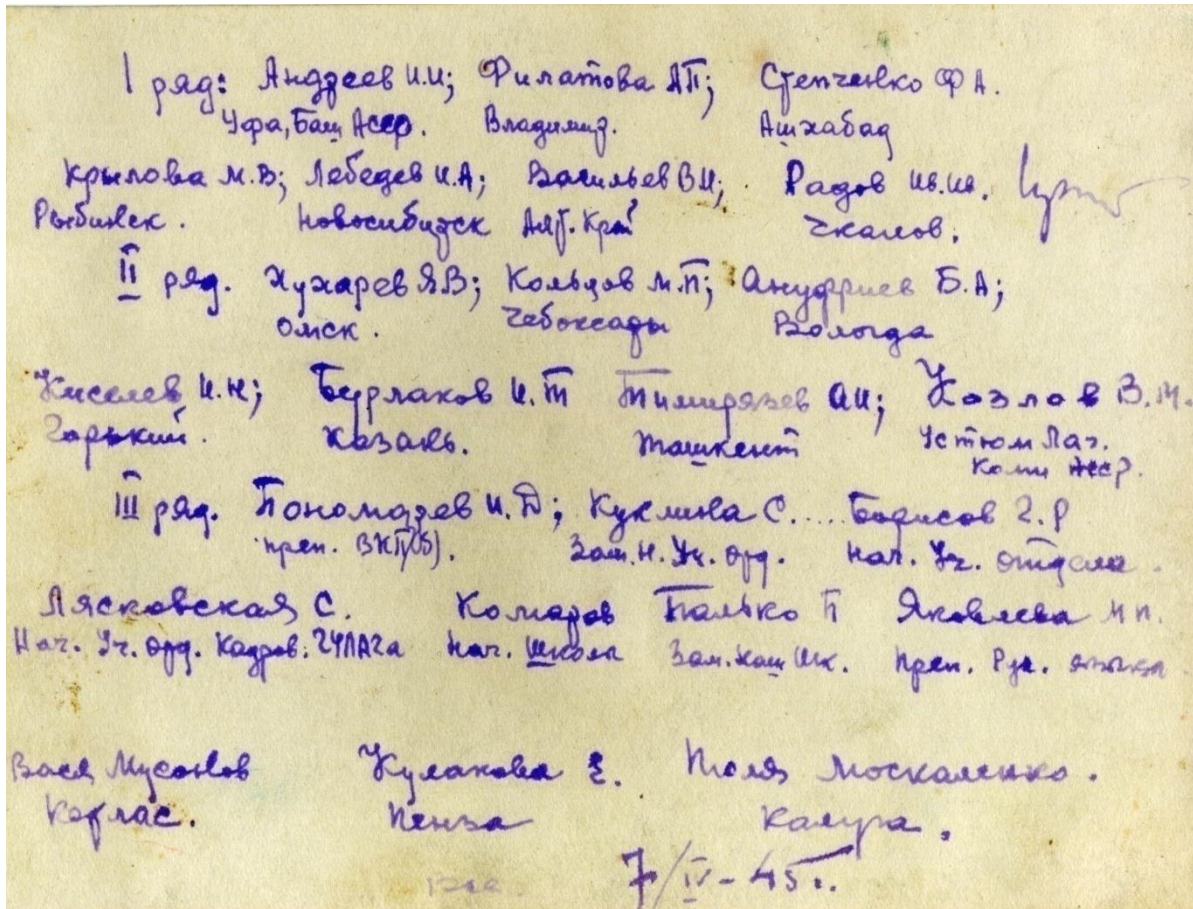 I ряд: Андреев И.И; Филатова АП; Степченко Ф А.
Уфа, Баш Асср. Владимир. Ашхабад
Крылова М.В; Лебедев И.А; Васильев В И; Радов Ив.Ив.
Рыбинск. Новосибирск Алт. Край Чкалов.
II ряд. Жухарев Я.В; Кольцов М.П; Ануфриев Б.А;
Омск. Чебоксары Вологда
Киселев И.Н; Бурлаков И.Т Тимирязев АИ; Козлов В.М.
Горький. Казань. Ташкент Устюм Лаг.
Коми Асср.
III ряд. Пономарев И.Д; Куклина С.... Борисов Г.Р
преп. ВКП(б). Зам.Н. Уч. Орг. Нач. Уч. отдела.
Лясковская С. Комаров Палько П Яковлева М П.
Нач. Уч. Орг. Кадров. ГУЛАГа Нач. Школы Зам. Нач Шк. преп. Рус. языка
Вася Мусонов Кулакова Е. Толя Москаленко.
Котлас. Пенза Калуга.
7/IV-45г.